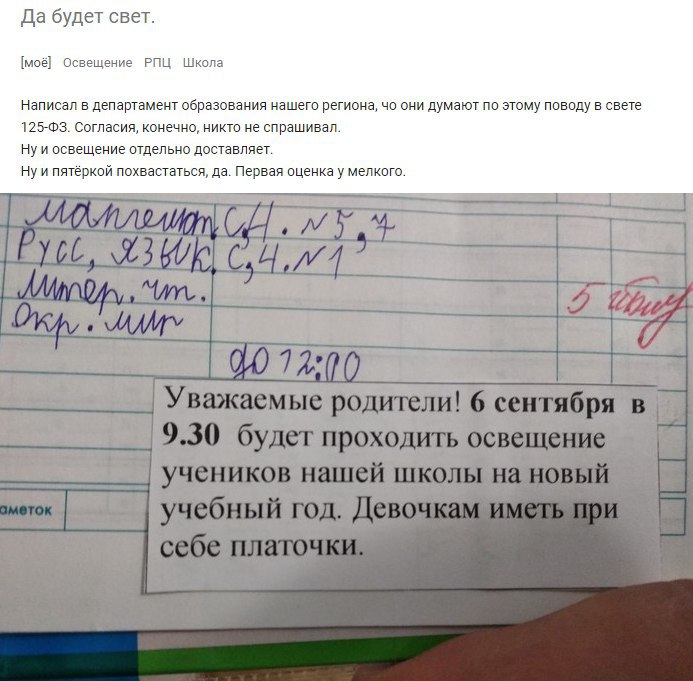 Да будет свет.
[моё] Освещение РПЦ Школа
Написал в департамент образования нашего региона, чо они думают по этому поводу в свете
125-ФЗ. Согласия, конечно, никто не спрашивал.
Ну и освещение отдельно доставляет.
Ну и пятёркой похвастаться, да. Первая оценка у мелкого.
С,4. №5,7
Русс, язык. С,4.№1
Литер. чт.
Окр. мир
5
до 12:00
Уважаемые родители! 6 сентября в
9.30 будет проходить освещение
учеников нашей школы на новый
учебный год. Девочкам иметь при
себе платочки.
аметок